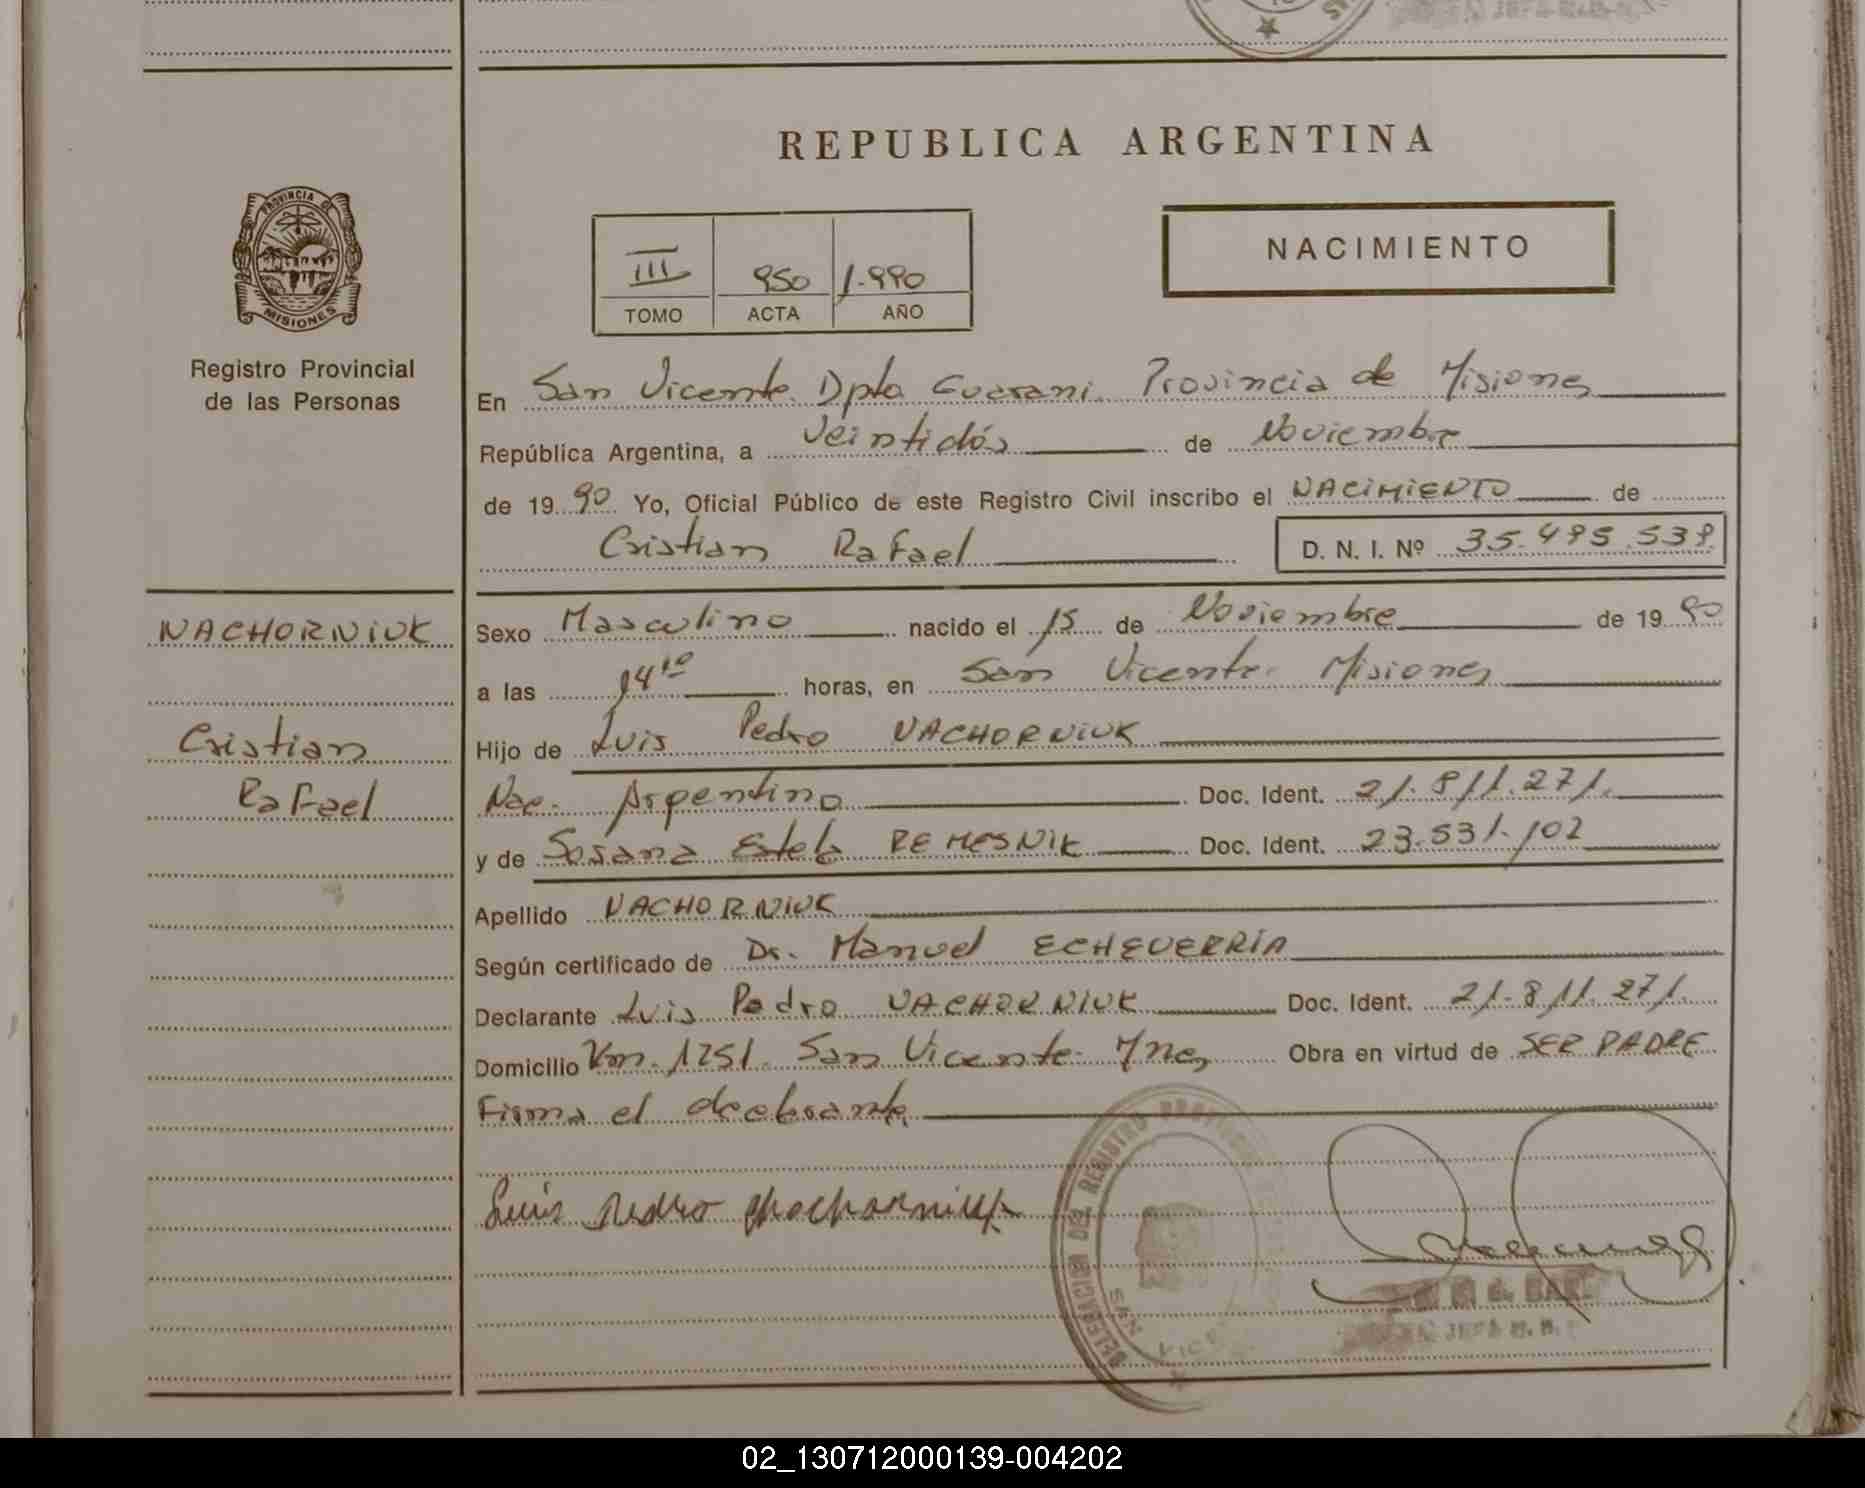 REPUBLICA ARGENTINA
PROVINCIA DE
MISIONES
Registro Provincial
de las Personas
III 950 1.990
TOMO ACTA AÑO
NACIMIENTO
En San Vicente Dpto Guarani. Provincia de Misiones
República Argentina, a Veintidós de Noviembre
de 1990 Yo, Oficial Público de este Registro Civil inscribo el NACIMIENTO de
Cristian Rafael D. N. I. Nº 35.495.539
NACHORNIUK
Cristian
Rafael
Sexo Masculino nacido el 15 de Noviembre de 1990
a las 14¹⁰ horas, en San Vicente. Misiones
Hijo de Luis Pedro NACHORNIUK
Nac. Argentino Doc. Ident. 21.811.271.
y de Susana Estela REMESNIK Doc. Ident. 23.531.102
Apellido NACHORNIUK
Según certificado de Dr. Manuel ECHEVERRÍA
Declarante Luis Pedro NACHORNIUK Doc. Ident. 21.811.271.
Domicilio Km. 1251. San Vicente. Mnes Obra en virtud de SER PADRE
Firma el declarante
DELEGACION DEL REGISTRO
SAN VICE
Luis Pedro
02_130712000139-004202